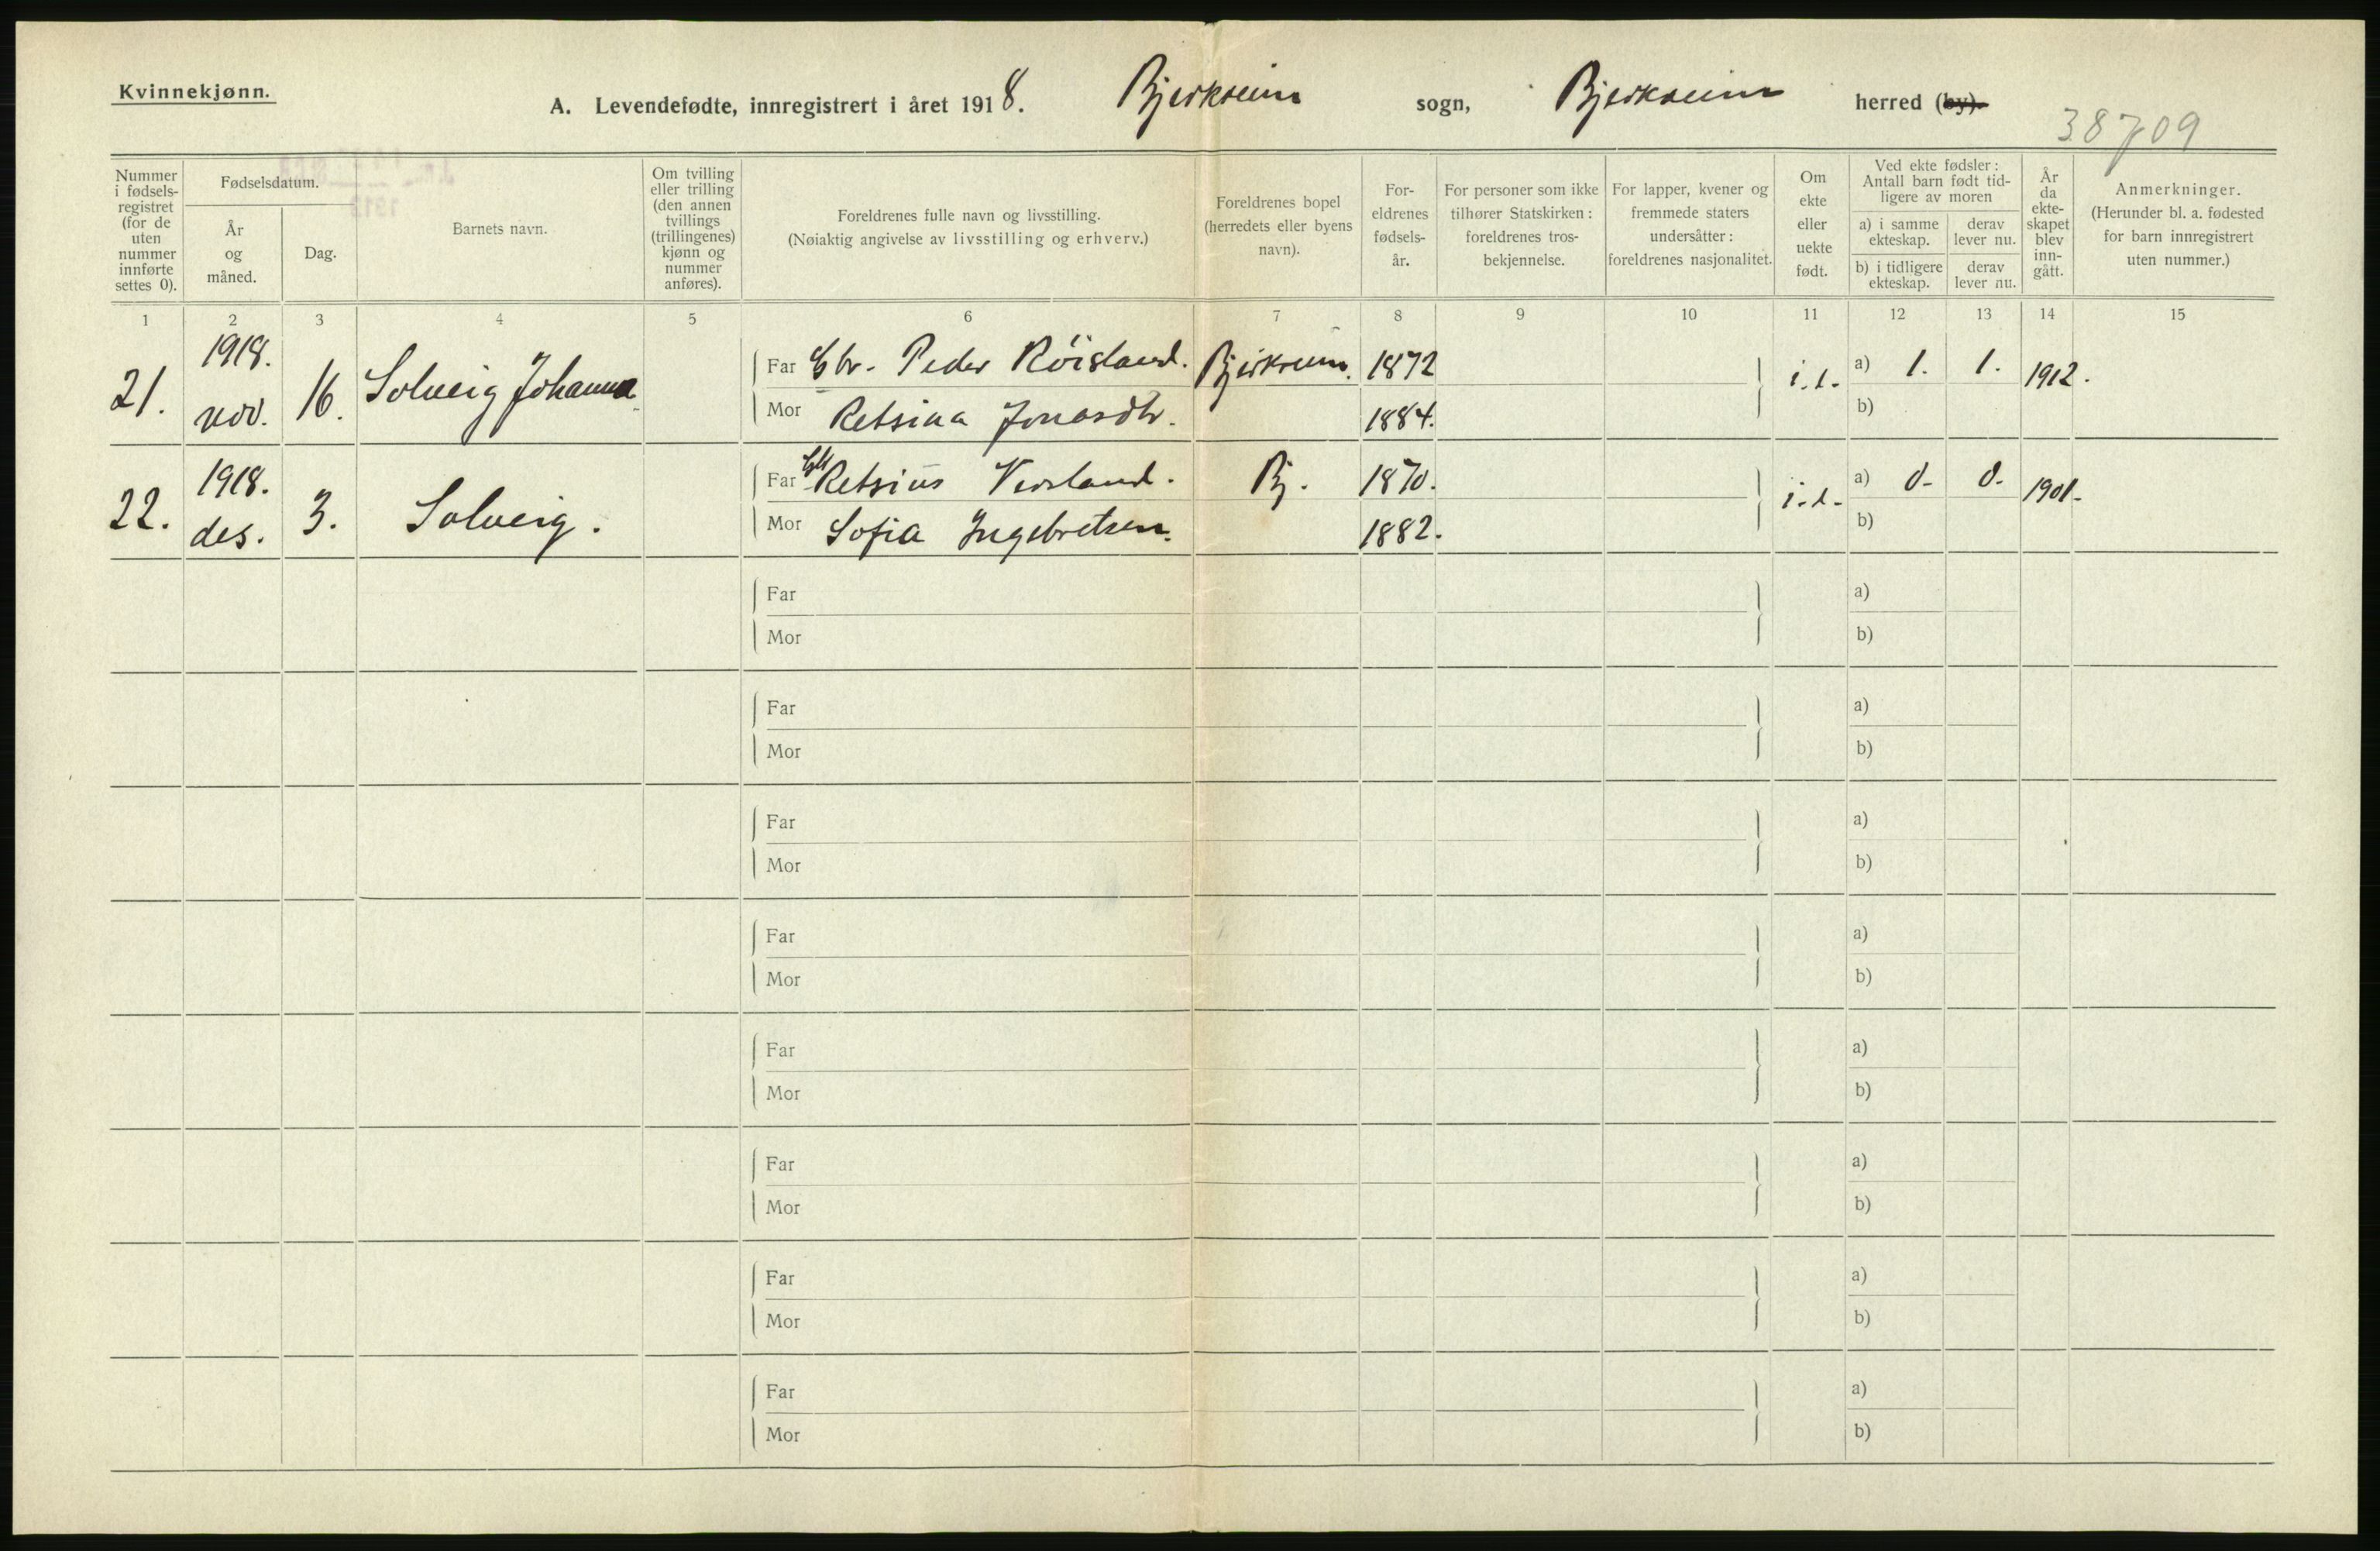 Kvinnekjønn.
A. Levendefødte, innregistrert i året 1918. Bjerkreim sogn, Bjerkreim herred (by).
38709
Nummer i fødsels-registret (for de uten nummer innførte settes 0).
Fødselsdatum.
År og måned.
Dag.
Barnets navn.
Om tvilling eller trilling (den annen tvillings (trillingenes) kjønn og nummer anføres).
Foreldrenes fulle navn og livsstilling.
(Nøiaktig angivelse av livsstilling og erhverv.)
Foreldrenes bopel (herredets eller byens navn).
For-eldrenes fødsels-år.
For personer som ikke tilhører Statskirken: foreldrenes tros-bekjennelse.
For lapper, kvener og fremmede staters undersåtter: foreldrenes nasjonalitet.
Om ekte eller uekte født.
Ved ekte fødsler: Antall barn født tid-ligere av moren
a) i samme ekteskap.
derav lever nu.
b) i tidligere ekteskap.
derav lever nu.
År da ekte-skapet blev inn-gått.
Anmerkninger.
(Herunder bl. a. fødested for barn innregistrert uten nummer.)
1 2 3 4 5 6 7 8 9 10 11 12 13 14 15
21. 1918. nov. 16. Solveig Johanna
Far Gbr. Peder Röisland. Bjerkreim. 1872 i.e. a) 1. 1. 1912.
Mor Retsina Jonasdtr. 1884. b)
22. 1918. des. 3. Solveig.
Far Retsius Versland. Bj. 1870. i.e. a) 0. 0. 1901.
Mor Sofia Ingebretsen. 1882. b)
Far a)
Mor b)
Far a)
Mor b)
Far a)
Mor b)
Far a)
Mor b)
Far a)
Mor b)
Far a)
Mor b)
Far a)
Mor b)
Far a)
Mor b)